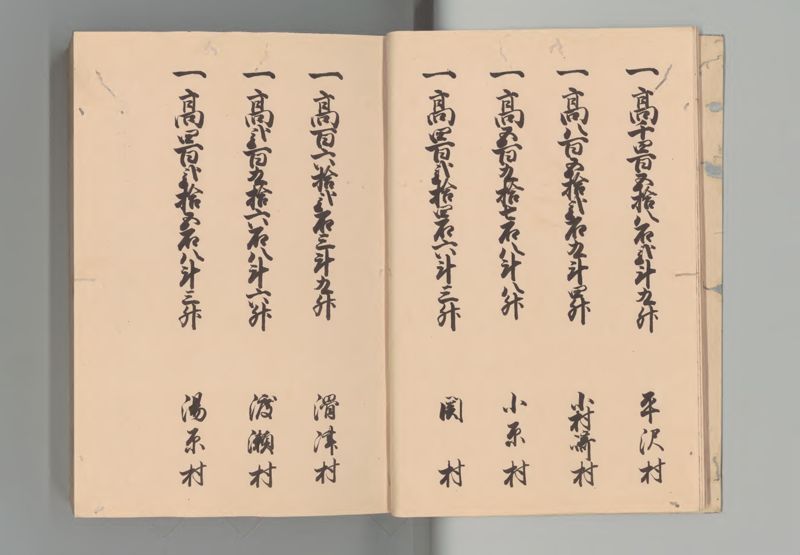 一高千四百五拾八石弐斗九升 平沢村
一高八百五拾弐石五斗四升 小村崎村
一高五百九拾七石八斗八升 小原村
一高四百弐拾四石六斗三升 関村
一高百六拾弐石三斗九升 滑津村
一高弐百九拾六石八斗六升 渡瀬村
一高四百弐拾五石八斗三升 湯原村